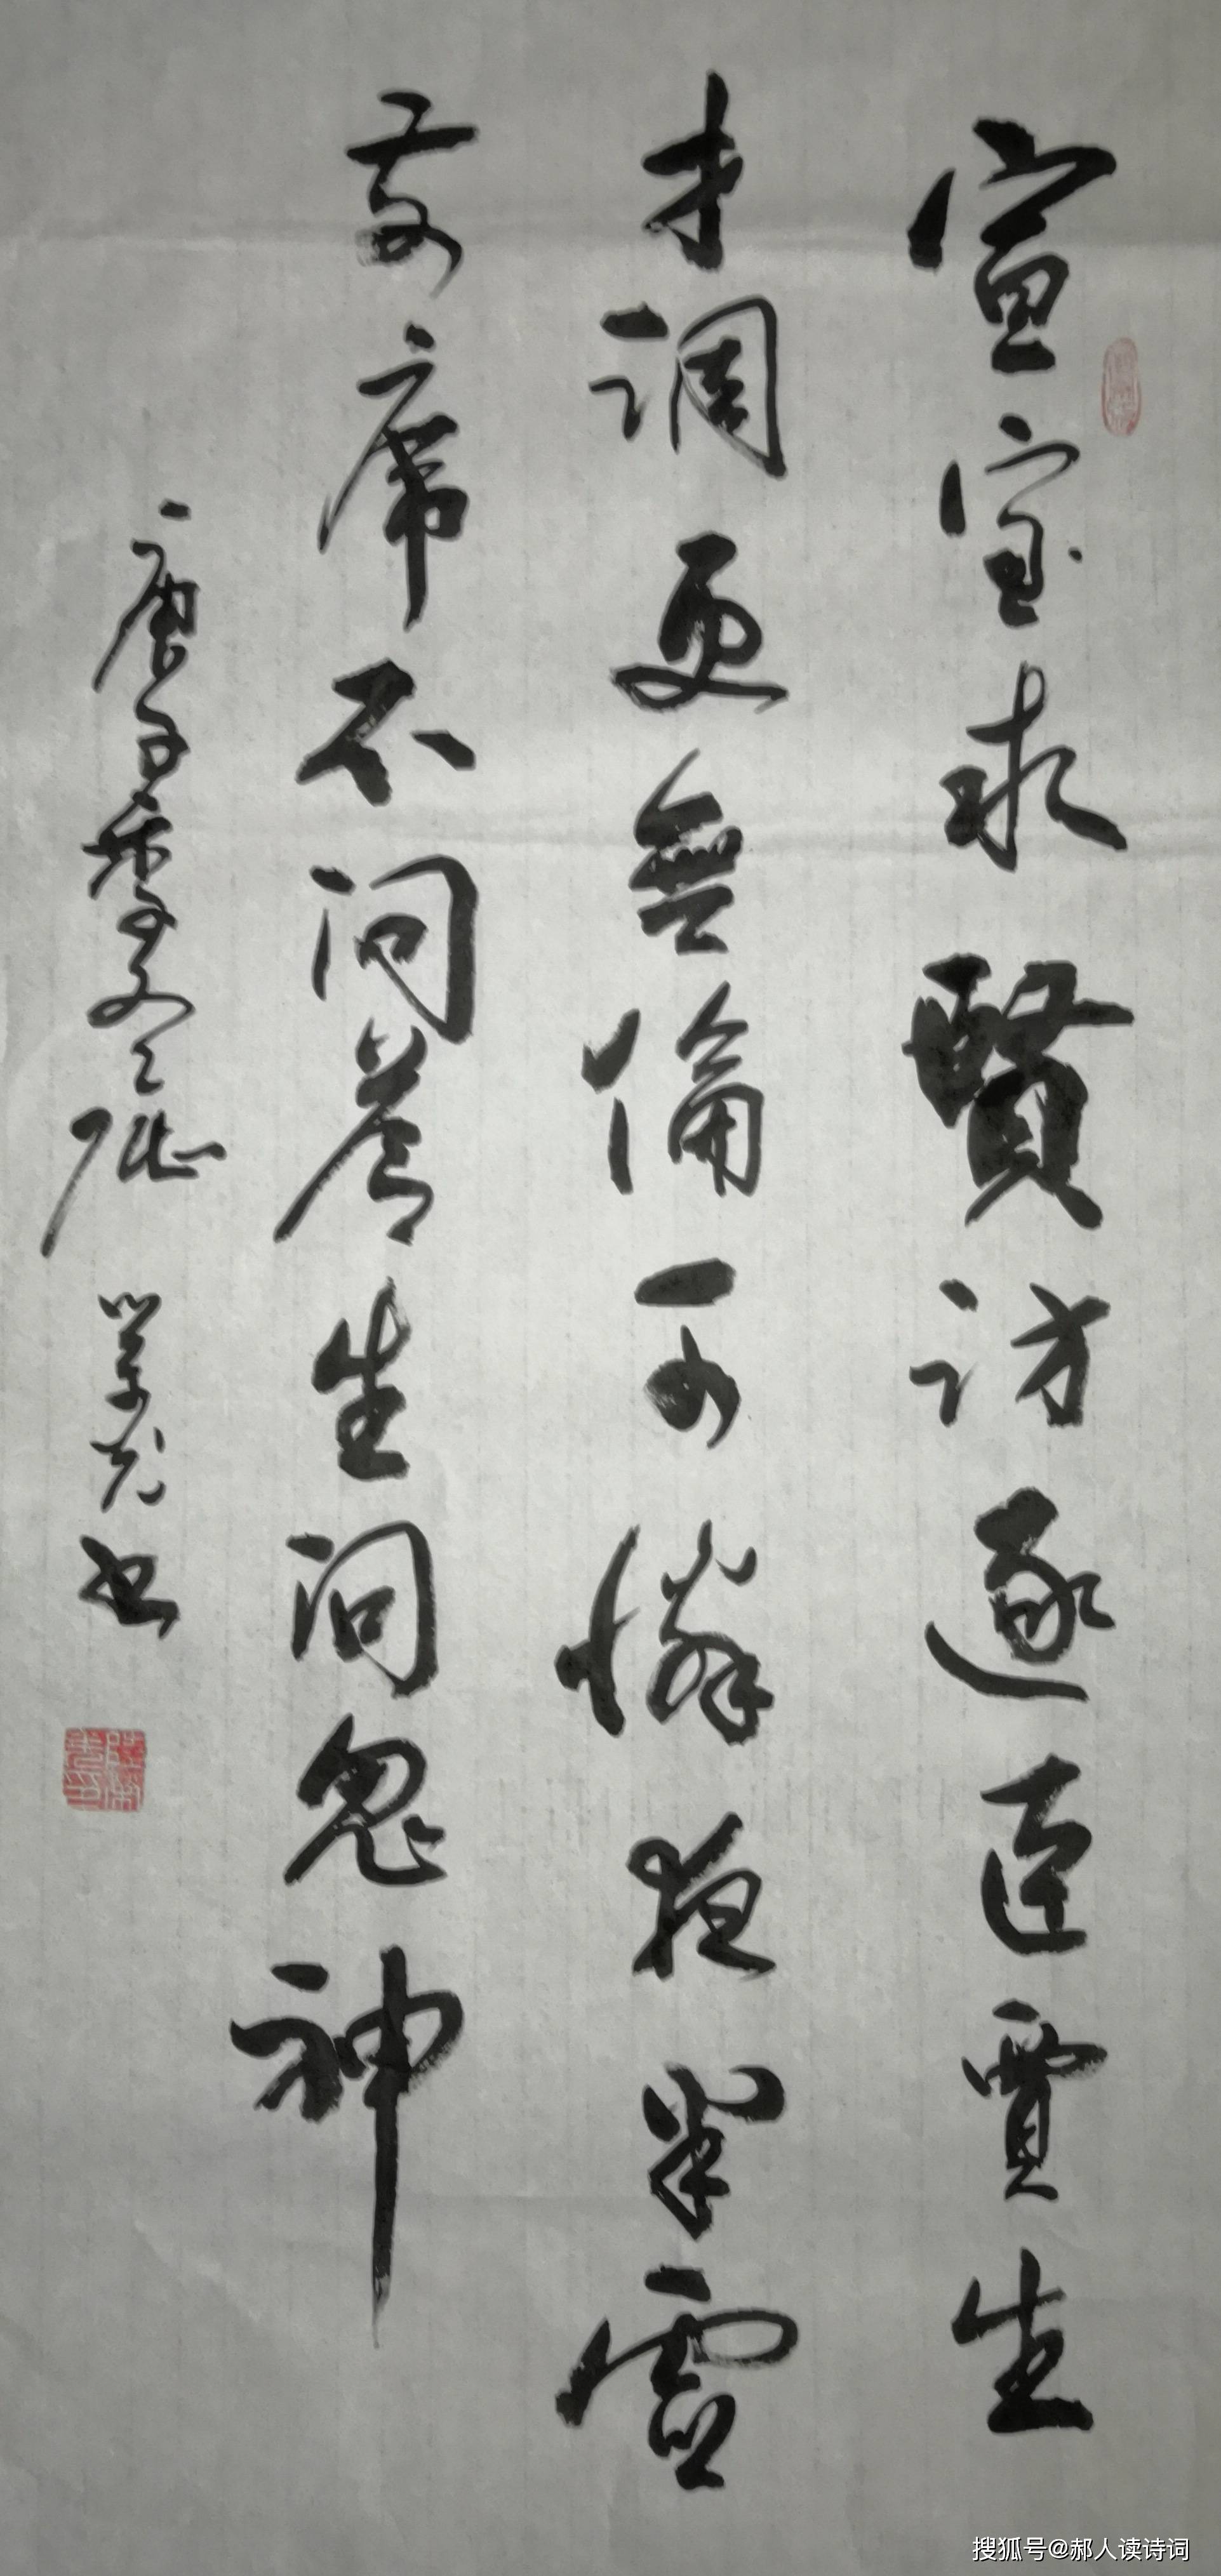 宣室求賢訪逐臣賈生
才調更無倫可憐夜半虛
前席不問蒼生問鬼神
庚子季冬 光书
搜狐号@郝人读诗词